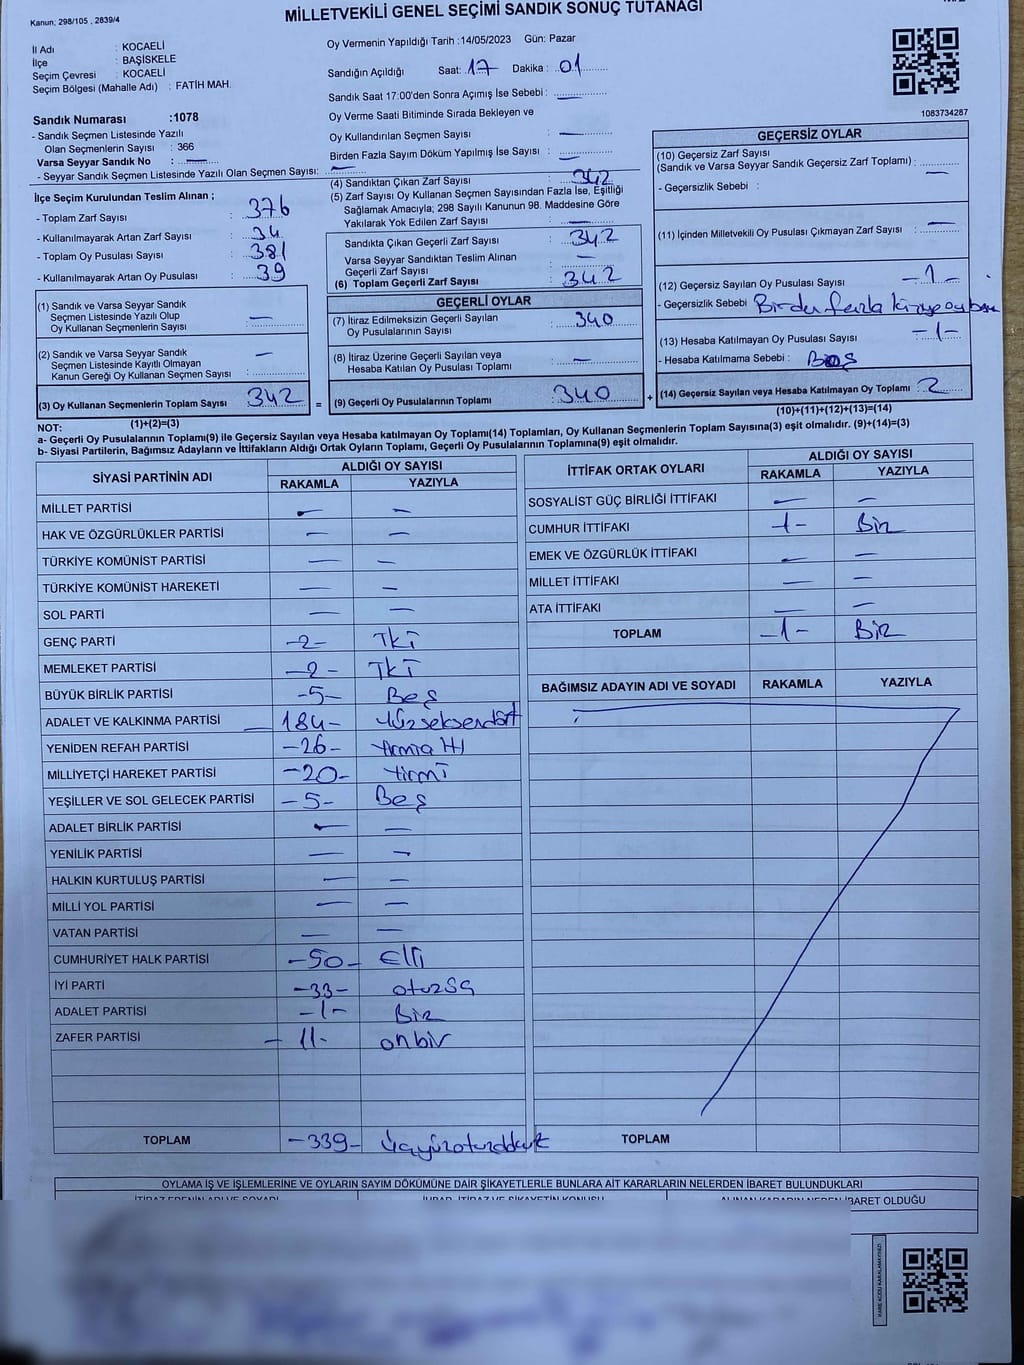 Kanun; 298/105 , 2839/4
MİLLETVEKİLİ GENEL SEÇİMİ SANDIK SONUÇ TUTANAĞI
İl Adı : KOCAELİ
İlçe : BAŞİSKELE
Seçim Çevresi : KOCAELİ
Seçim Bölgesi (Mahalle Adı) : FATİH MAH.
Sandık Numarası :1078
- Sandık Seçmen Listesinde Yazılı
Olan Seçmenlerin Sayısı : 366
Varsa Seyyar Sandık No : —
- Seyyar Sandık Seçmen Listesinde Yazılı Olan Seçmen Sayısı: —
İlçe Seçim Kurulundan Teslim Alınan ;
- Toplam Zarf Sayısı : 376
- Kullanılmayarak Artan Zarf Sayısı : 34
- Toplam Oy Pusulası Sayısı : 381
- Kullanılmayarak Artan Oy Pusulası : 39
(1) Sandık ve Varsa Seyyar Sandık
Seçmen Listesinde Yazılı Olup
Oy Kullanan Seçmenlerin Sayısı : —
(2) Sandık ve Varsa Seyyar Sandık
Seçmen Listesinde Kayıtlı Olmayan
Kanun Gereği Oy Kullanan Seçmen Sayısı : —
(3) Oy Kullanan Seçmenlerin Toplam Sayısı : 342 =
(1)+(2)=(3)
Oy Vermenin Yapıldığı Tarih :14/05/2023 Gün: Pazar
Sandığın Açıldığı Saat: 17 Dakika : 01
Sandık Saat 17:00'den Sonra Açımış İse Sebebi : —
Oy Verme Saati Bitiminde Sırada Bekleyen ve
Oy Kullandırılan Seçmen Sayısı : —
Birden Fazla Sayım Döküm Yapılmış İse Sayısı : —
(4) Sandıktan Çıkan Zarf Sayısı : 342
(5) Zarf Sayısı Oy Kullanan Seçmen Sayısından Fazla İse, Eşitliği
Sağlamak Amacıyla; 298 Sayılı Kanunun 98. Maddesine Göre
Yakılarak Yok Edilen Zarf Sayısı : —
Sandıkta Çıkan Geçerli Zarf Sayısı : 342
Varsa Seyyar Sandıktan Teslim Alınan
Geçerli Zarf Sayısı : —
(6) Toplam Geçerli Zarf Sayısı : 342
GEÇERLİ OYLAR
(7) İtiraz Edilmeksizin Geçerli Sayılan
Oy Pusulalarının Sayısı : 340
(8) İtiraz Üzerine Geçerli Sayılan veya
Hesaba Katılan Oy Pusulası Toplamı : —
(9) Geçerli Oy Pusulalarının Toplamı : 340 +
1083734287
GEÇERSİZ OYLAR
(10) Geçersiz Zarf Sayısı
(Sandık ve Varsa Seyyar Sandık Geçersiz Zarf Toplamı) : —
- Geçersizlik Sebebi :
(11) İçinden Milletvekili Oy Pusulası Çıkmayan Zarf Sayısı : —
(12) Geçersiz Sayılan Oy Pusulası Sayısı : -1-
- Geçersizlik Sebebi Birden fazla
(13) Hesaba Katılmayan Oy Pusulası Sayısı : -1-
- Hesaba Katılmama Sebebi : Boş
(14) Geçersiz Sayılan veya Hesaba Katılmayan Oy Toplamı : 2
(10)+(11)+(12)+(13)=(14)
NOT:
a- Geçerli Oy Pusulalarının Toplamı(9) ile Geçersiz Sayılan veya Hesaba katılmayan Oy Toplamı(14) Toplamları, Oy Kullanan Seçmenlerin Toplam Sayısına(3) eşit olmalıdır. (9)+(14)=(3)
b- Siyasi Partilerin, Bağımsız Adayların ve İttifakların Aldığı Ortak Oyların Toplamı, Geçerli Oy Pusulalarının Toplamına(9) eşit olmalıdır.
SİYASİ PARTİNİN ADI ALDIĞI OY SAYISI
RAKAMLA YAZIYLA
MİLLET PARTİSİ — —
HAK VE ÖZGÜRLÜKLER PARTİSİ — —
TÜRKİYE KOMÜNİST PARTİSİ — —
TÜRKİYE KOMÜNİST HAREKETİ — —
SOL PARTİ — —
GENÇ PARTİ -2- İki
MEMLEKET PARTİSİ -2- İki
BÜYÜK BİRLİK PARTİSİ -5- Beş
ADALET VE KALKINMA PARTİSİ 184- Yüzseksendört
YENİDEN REFAH PARTİSİ -26- Yirmialtı
MİLLİYETÇİ HAREKET PARTİSİ -20- Yirmi
YEŞİLLER VE SOL GELECEK PARTİSİ -5- Beş
ADALET BİRLİK PARTİSİ — —
YENİLİK PARTİSİ — —
HALKIN KURTULUŞ PARTİSİ — —
MİLLİ YOL PARTİSİ — —
VATAN PARTİSİ — —
CUMHURİYET HALK PARTİSİ -50- Elli
İYİ PARTİ -33- otuzüç
ADALET PARTİSİ -1- Bir
ZAFER PARTİSİ -11- onbir
TOPLAM -339- üçyüzotuzdokuz
İTTİFAK ORTAK OYLARI ALDIĞI OY SAYISI
RAKAMLA YAZIYLA
SOSYALİST GÜÇ BİRLİĞİ İTTİFAKI — —
CUMHUR İTTİFAKI -1- Bir
EMEK VE ÖZGÜRLÜK İTTİFAKI — —
MİLLET İTTİFAKI — —
ATA İTTİFAKI — —
TOPLAM -1- Bir
BAĞIMSIZ ADAYIN ADI VE SOYADI RAKAMLA YAZIYLA
TOPLAM
OYLAMA İŞ VE İŞLEMLERİNE VE OYLARIN SAYIM DÖKÜMÜNE DAİR ŞİKAYETLERLE BUNLARA AİT KARARLARIN NELERDEN İBARET BULUNDUKLARI
İTİRAZ EDENİN ADI VE SOYADI İHBAR, İTİRAZ VE ŞİKAYETİN KONUSU ALINAN KARARIN NEDEN İBARET OLDUĞU